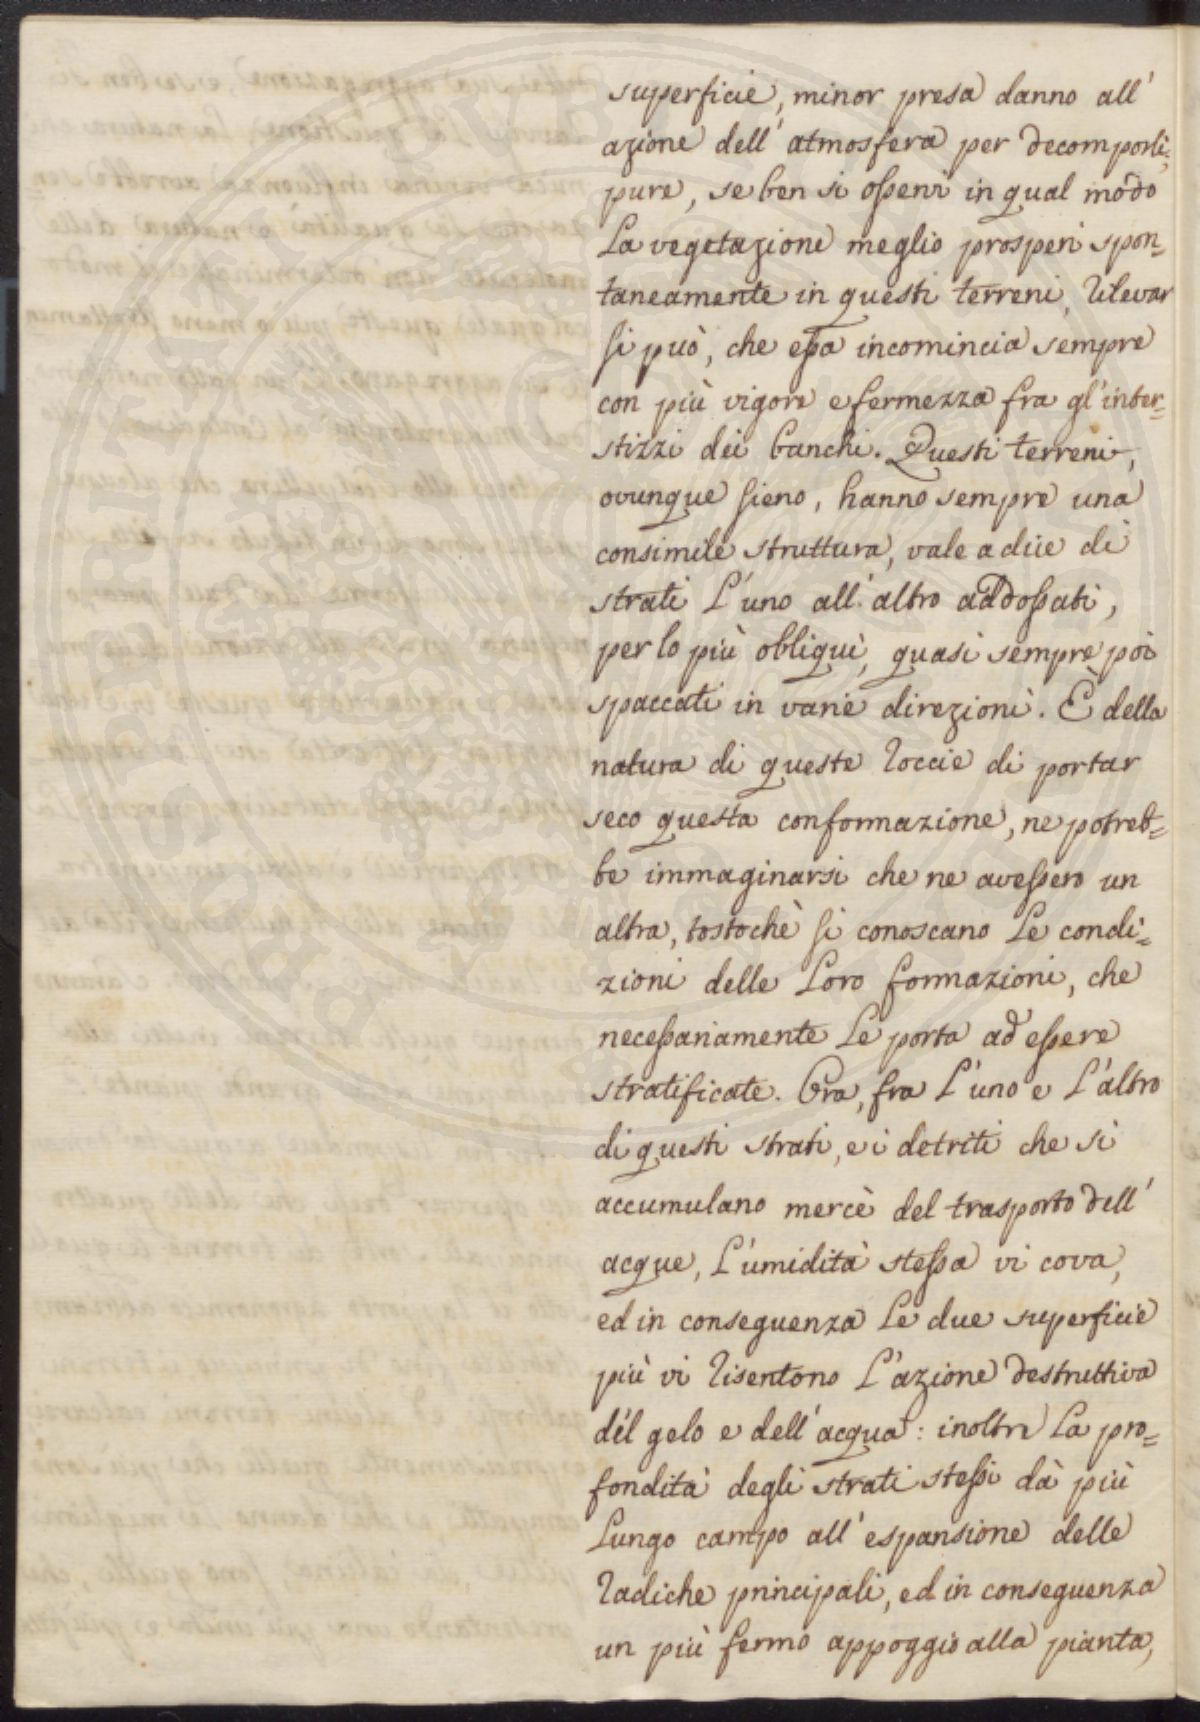 superficie, minor presa danno all'
azione dell' atmosfera per decomporli;
pure, se ben si osservi in qual modo
la vegetazione meglio prosperi spon=
taneamente in questi terreni, rilevar
si può, che essa incomincia sempre
con più vigore e fermezza fra gl'inter=
stizzi dei banchi. Questi terreni,
ovunque sieno, hanno sempre una
consimile struttura, vale a dire di
strati l'uno all' altro addossati,
per lo più obliqui, quasi sempre poi
spaccati in varie direzioni. È della
natura di queste roccie di portar
seco questa conformazione, ne potreb=
be immaginarsi che ne avessero un
altra, tostochè si conoscano le condi=
zioni delle loro formazioni, che
necessariamente le porta ad essere
stratificate. Ora, fra l'uno e l'altro
di questi strati, e i detriti che si
accumulano mercè del trasporto dell'
acque, l'umidità stessa vi cova,
ed in conseguenza le due superficie
più vi risentono l'azione destruttiva
del gelo e dell' acqua: inoltre la pro=
fondità degli strati stessi dà più
lungo campo all' espansione delle
radiche principali, ed in conseguenza
un più fermo appoggio alla pianta,